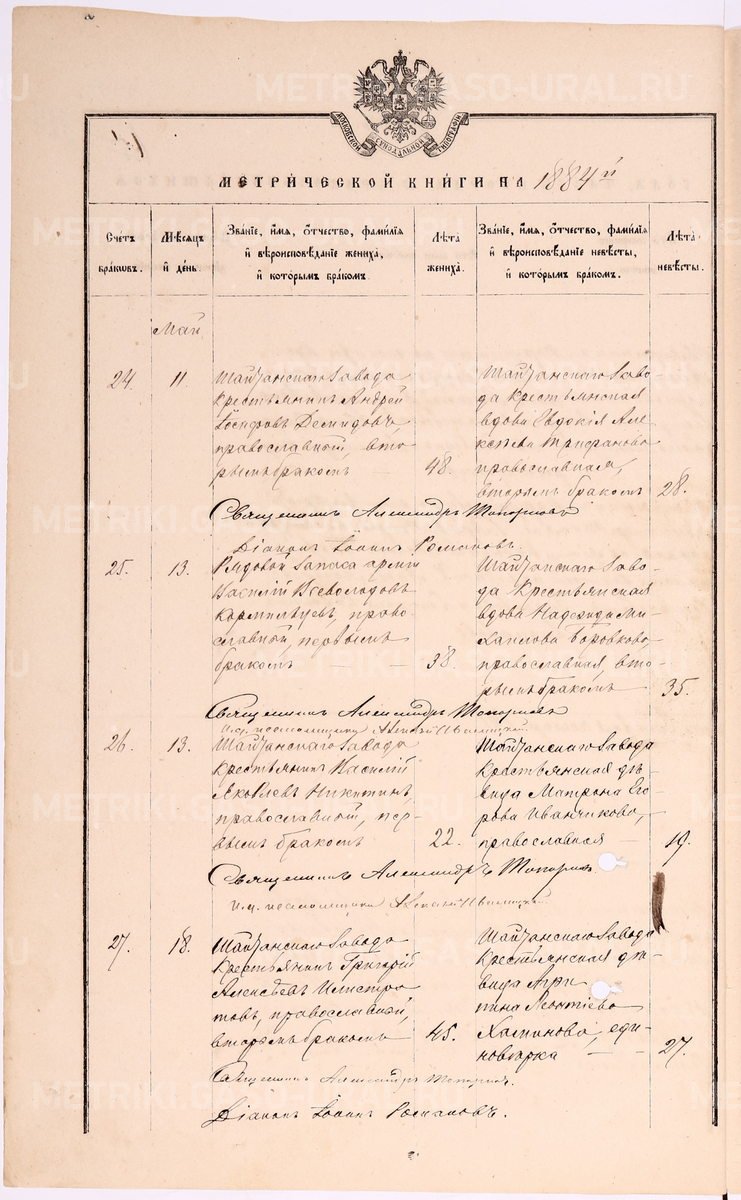 МОСКОВСКОЙ СѴНОДАЛЬНОЙ ТИПОГРАФІИ
МЕТРИЧЕСКОЙ КНИГИ НА 1884й
Счетъ браковъ.
Мѣсяцъ и день.
Званіе, имя, отчество, фамилія и вѣроисповѣданіе жениха, и которымъ бракомъ.
Лѣта жениха.
Званіе, имя, отчество, фамилія и вѣроисповѣданіе невѣсты, и которымъ бракомъ.
Лѣта невѣсты.
Май
24. 11. Шайтанскаго Завода
крестьянинъ Андрей
Іосифовъ Демидовъ,
православный, вто-
рымъ бракомъ
48.
Шайтанскаго Заво-
да крестьянская
вдова Евдокія Але-
ксѣева Трифанова
православная,
вторымъ бракомъ
28.
Священникъ Александръ Топорковъ
Діаконъ Іоаннъ Романовъ.
25. 13. Рядовой запаса арміи
Василій Всеволодовъ
Кормильцевъ, право-
славный, первымъ
бракомъ
38.
Шайтанскаго Заво-
да Крестьянская
вдова Надежда Ми-
хаилова Боровкова,
православная, вто-
рымъ бракомъ
35.
Священникъ Александръ Топорковъ
И.д. псаломщика
26. 13. Шайтанскаго Завода
крестьянинъ Василій
Яковлевъ Никитинъ,
православный, пер-
вымъ бракомъ
22.
Шайтанскаго Завода
крестьянская дѣ-
вица Матрона Его-
рова Иванчикова,
православная
19.
Священникъ Александръ Топорковъ.
И.д. псаломщика
27. 18. Шайтанскаго Завода
крестьянинъ Григорій
Алексѣевъ
православный,
вторымъ бракомъ
45.
Шайтанскаго Завода
крестьянская дѣ-
вица Агри-
пина Леонтіева
еди-
новѣрка
27.
Священникъ Александръ Топорковъ.
Діаконъ Іоаннъ Романовъ.
METRIKI.GASO-URAL.RU